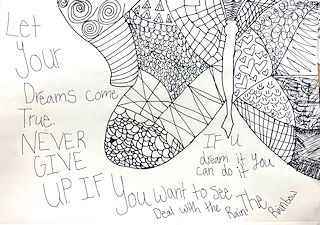 Let
Your
Dreams come
True.
NEVER
GIVE
UP IF You Want to See The Rainbow
Deal with the Rain
IF U
dream it You
can do it